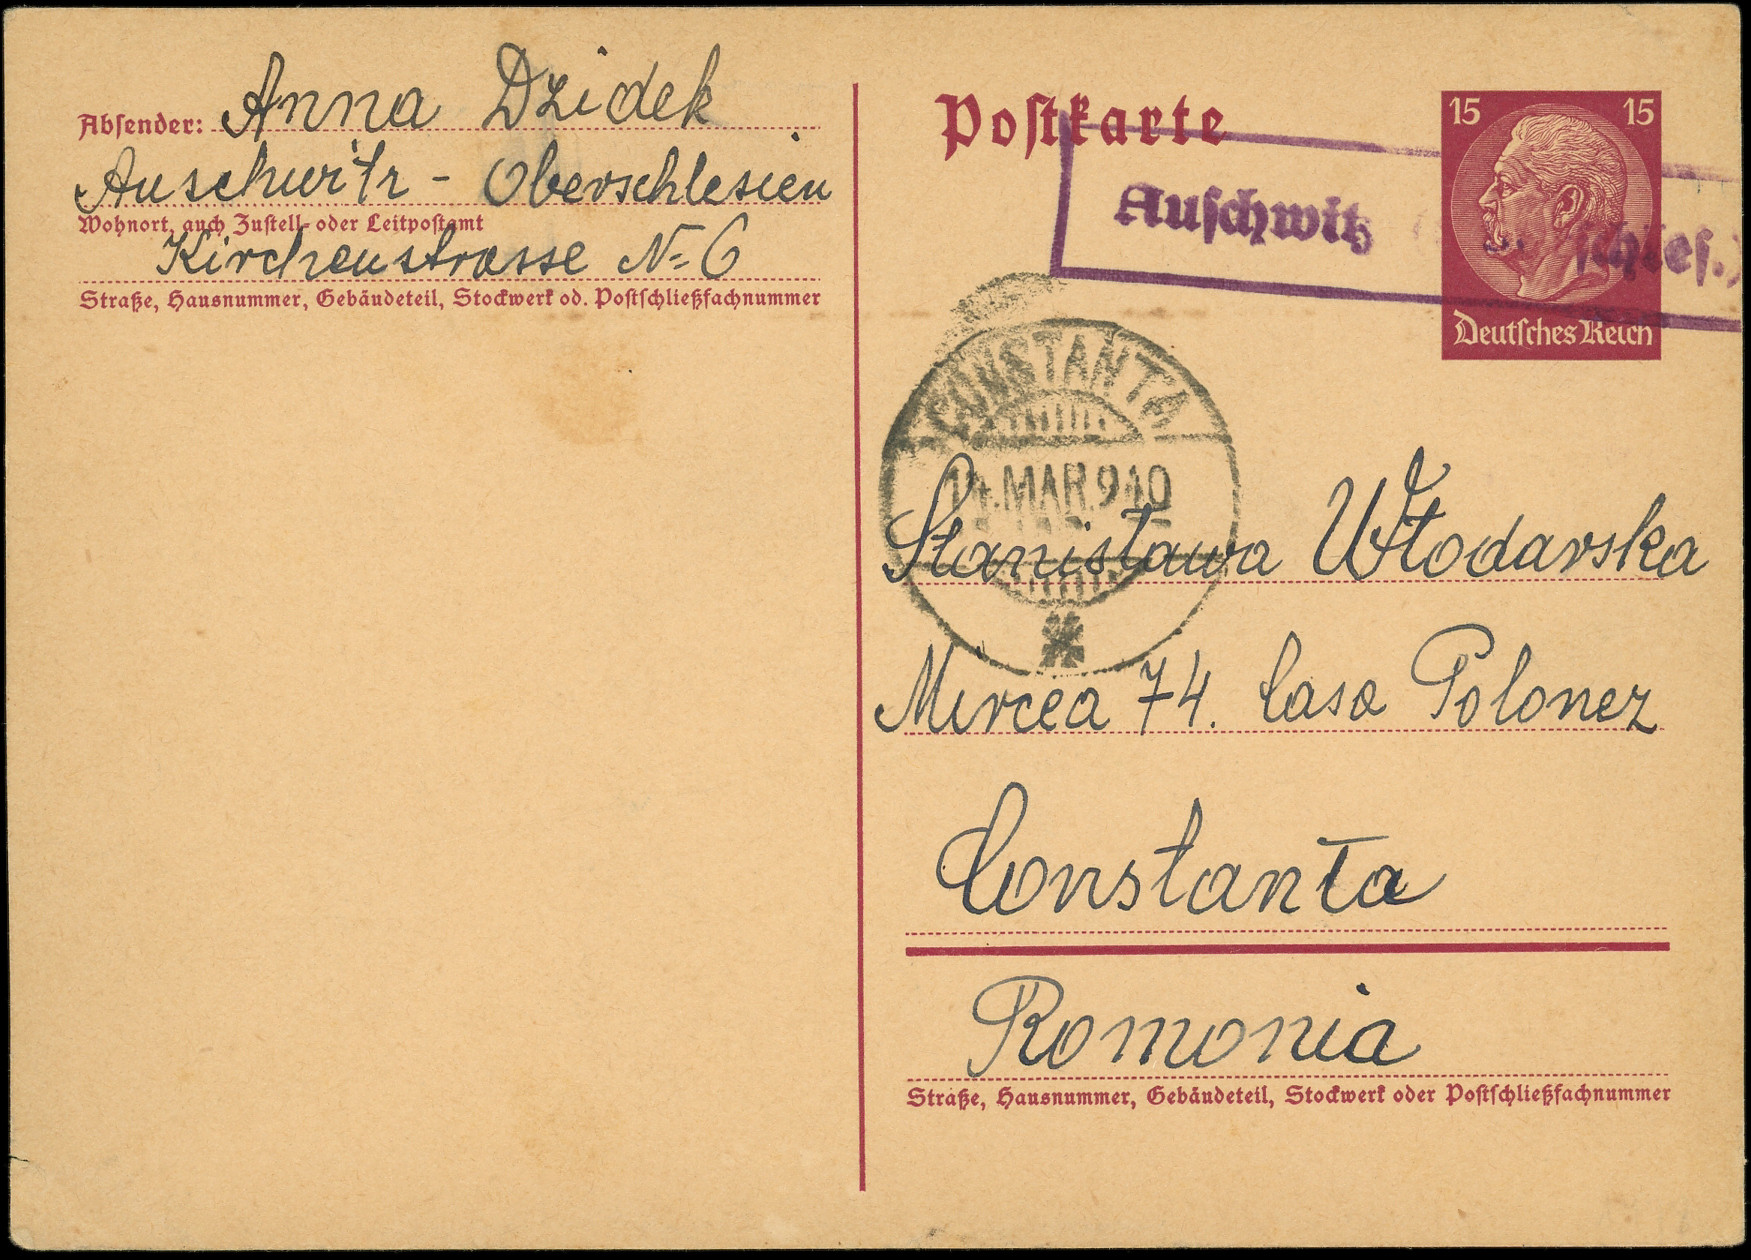 Absender: Anna Dzidek
Auschwitz - Oberschlesien
Wohnort, auch Zustell- oder Leitpostamt
Kirchenstrasse N= 6
Straße, Hausnummer, Gebäudeteil, Stockwerk od. Postschließfachnummer
Postkarte
15 15
Deutsches Reich
Auschwitz schles.)
CONSTANTA
14.MAR.940
Stanisława Włodarska
Mircea 74. Casa Polonez
Constanta
Romonia
Straße, Hausnummer, Gebäudeteil, Stockwerk oder Postschließfachnummer